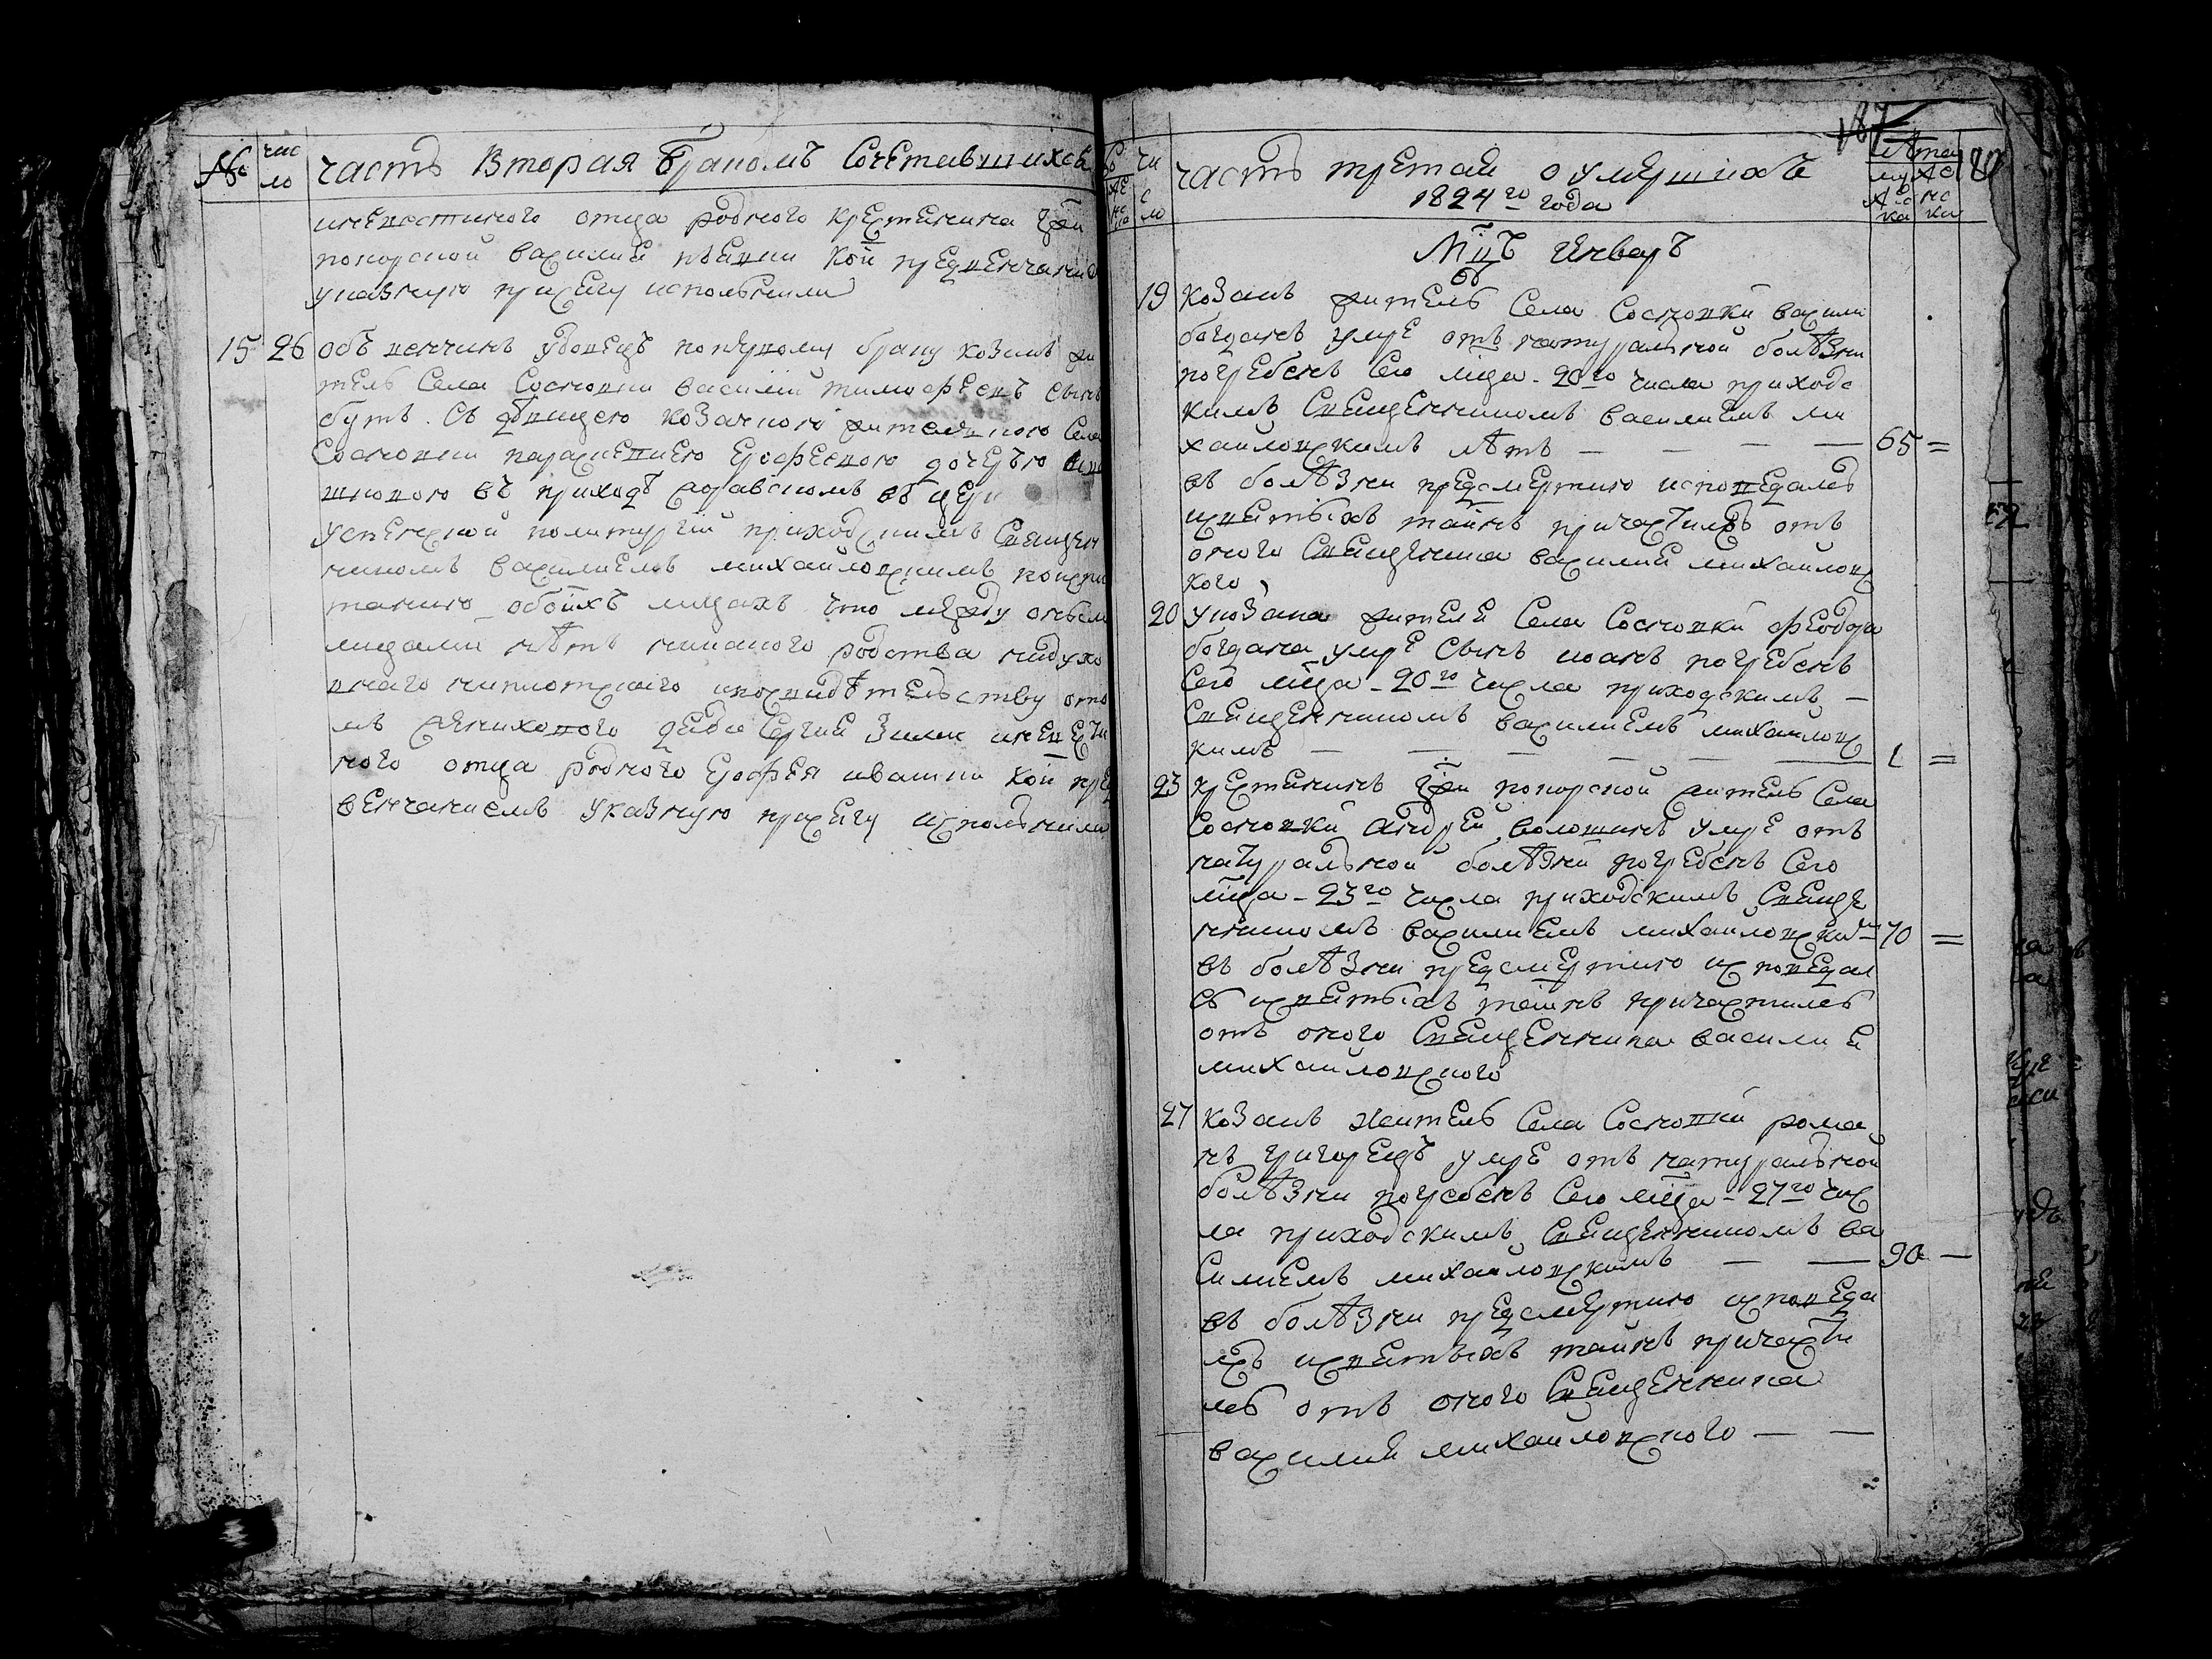 № чис
ло
часть Вторая Бракомъ Сочетавшихся
иневестиного отца родного крестянина
василия кои предвенчания
указную присягу исполнили
15 26 Объ венчанъ удовецъ попервому браку козакъ жи
тель Села Сосновки василии тимофеевъ сынъ
бутъ. Съ девицею козачкою жителкою Села
Сосновки параскевиею Ерофеевою дочерью
въ приходъ
успенской политургии приходскимъ Священ
никомъ василиемъ михайловскимъ
обоихъ лицахъ что между оным
лицами нѣтъ никакого родства нидухо
внаго ниплотского ипосвидѣтельству
женихового Сергия иневести
ного отца родного Ерофея ивашки кои пред
венчаниемъ указную присягу исполнили
187
180
чи
с
ло
часть третая о умершихъ
1824го года
лѣта
муже
ска
же
нс
ка
Мцъ Январъ
19 Козакъ житель Села Сосновки васили
богданъ умре отъ натуральной болѣзни
погребенъ Сего мца - 20го числа приходс
кимъ Священникомъ василиемъ ми
хайловскимъ лѣтъ — — — — 65 =
въ болѣзни предсмертию исповедалсь
исвятыхъ тайнъ причастилсь отъ
оного Священника василия михайловс
кого
20 укозака жителя Села Сосновки Феодора
богдана умре Сынъ иоанъ погребенъ
Сего мца - 20го числа приходскимъ —
Священникомъ василиемъ михайловс
кимъ — — — — — — 1 =
23 крестянинъ житель Села
Сосновки Андрей волошинъ умре отъ
натуральной болѣзни погребенъ Сего
мца - 23го числа приходскимъ Священ
никомъ василиемъ михайловскимъ 70 =
въ болѣзни предсмертию исповедал
сь исвятыхъ тайнъ причастилсь
отъ оного Священника василия
михайловского
27 Козакъ житель Села Сосновки рома
нъ григорецъ умре отъ натуральной
болѣзни погребенъ Сего мца - 27го чис
ла приходскимъ Священникомъ ва
силиемъ михайловскимъ — — 90 —
въ болѣзни предсмертию исповеда
лсь исвятыхъ тайнъ причасти
лсь отъ оного Священника
василия михайловского — —